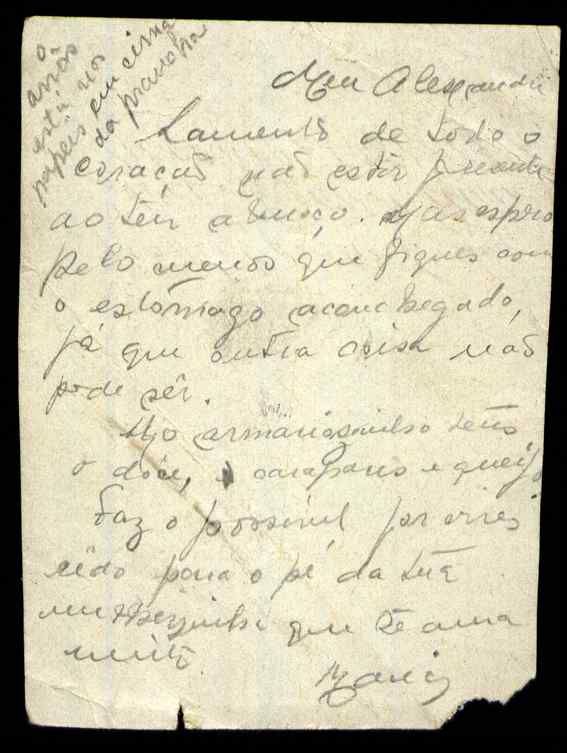 O
arrôs
está nos
papeis em cima
da
Meu Alexandre
Lamento de todo o
coração não estar presente
ao teu almoço. Mas espero
pelo menos que fiques com
o estômago aconchegado,
já que outra coisa não
pode sêr.
No armariosinho tens
o dôce, e queijo
Faz o possivel por vires
cêdo para o pé da tua
mulhersinha que te ama
muito
Maria